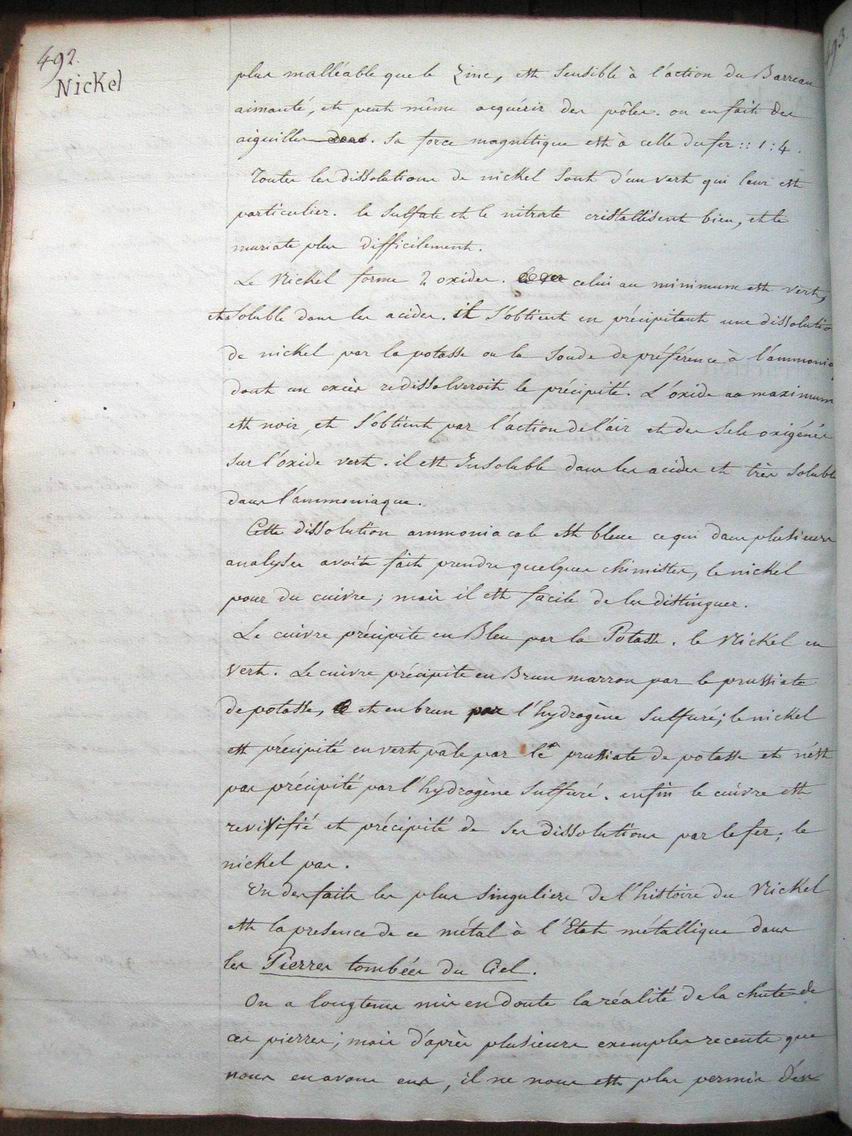 492.
Nickel
plus malléable que le Zinc, est sensible à l'action du Barreau
aimanté, et peut même acquérir des pôles. on en fait des
aiguilles. Sa force magnétique est à celle du fer :: 1 : 4.
Toutes les dissolutions de nickel sont d'un vert qui leur est
particulier. le sulfate et le nitrate cristallisent bien, et le
muriate plus difficilement.
Le Nickel forme 2 oxides. celui au minimum est vert,
et soluble dans les acides. il s'obtient en précipitant une dissolution
de nickel par la potasse ou la soude de préférence à l'ammonia
dont un excès redissolveroit le précipité. L'oxide au maximum
est noir, et s'obtient par l'action de l'air et des sels oxigénés
sur l'oxide vert. il est Insoluble dans les acides et très soluble
dans l'ammoniaque.
Cette dissolution ammoniacale est bleue ce qui dans plusieurs
analyses avoit fait prendre quelques chimistes, le nickel
pour du cuivre ; mais il est facile de les distinguer.
Le cuivre précipite en Bleu par la Potasse. le Nickel en
vert. Le cuivre précipite en Brun marron par le prussiate
de potasse, et en brun par l'hydrogène sulfuré ; le nickel
est précipité en vert pale par le prussiate de potasse et n'est
pas précipité par l'hydrogène sulfuré. enfin le cuivre est
revifié et précipité de ses dissolutions par le fer ; le
nickel pas.
Un des faits les plus singuliers de l'histoire du Nickel
est la presence de ce métal à l'Etat métallique dans
les Pierres tombées du Ciel.
On a longtems mis en doute la réalité de la chute de
ces pierres ; mais d'après plusieurs exemples recents que
nous en avons eus, il ne nous est plus permis d'en